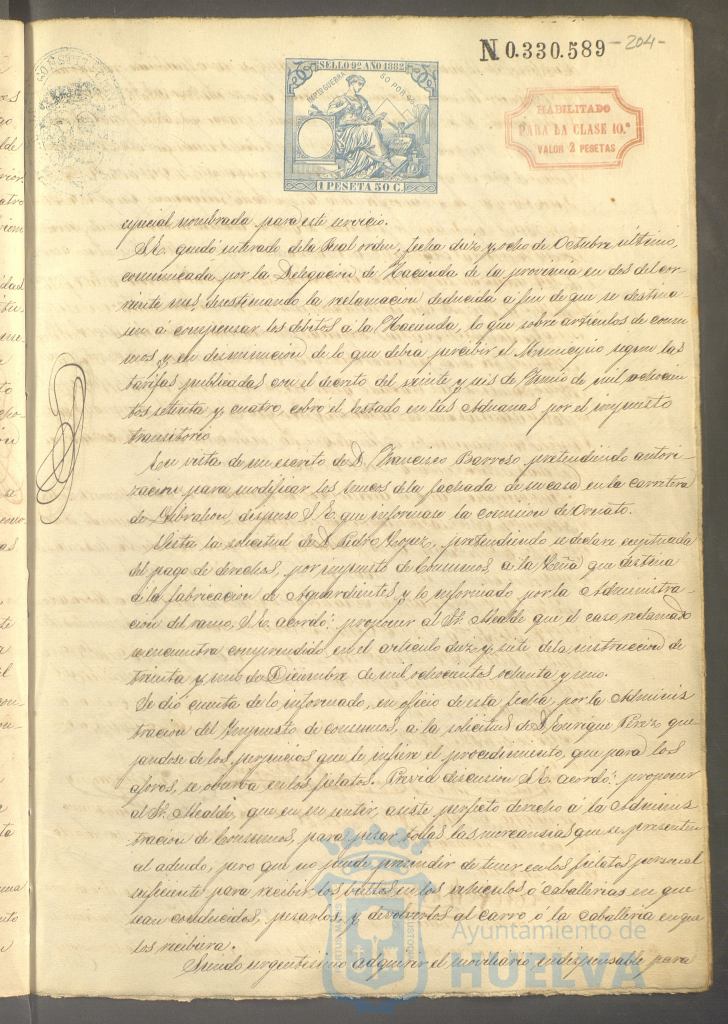 N 0.330.589 -204-
SELLO 9º AÑO 1882
IMPTO GUERRA 50 POR 100
1 PESETA 50 C.
HABILITADO
PARA LA CLASE 10.ª
VALOR 2 PESETAS
especial nombrada para este servicio.
S. E. quedó enterado de la Real orden, fecha diez y ocho de Octubre último,
comunicada por la Delegacion de Hacienda de la provincia en dos del cor-
riente mes, desestimando la reclamacion deducida a fin de que se destina-
sen á compensar los débitos á la Hacienda, lo que sobre artículos de consu-
mos y en disminucion de lo que debia percibir el Municipio segun las
tarifas publicadas con el decreto del veinte y seis de Junio de mil ochocien-
tos setenta y cuatro, cobró el Estado en las Aduanas por el impuesto
transitorio.
En vista de un escrito de D. Francisco Barroso pretendiendo autori-
zacion para modificar los huecos de la fachada de su casa en la carretera
de Gibraleon, dispuso S. E. que informase la comision de Ornato.
Vista la solicitud de D. Pedro Lopez, pretendiendo se declare
del pago de derechos, por impuesto de Consumos, á la Leña que destina
á la fabricacion de Aguardientes, y lo informado por la Administra-
cion del ramo, S. E. acordó: proponer al Sr. Alcalde que el caso reclamado
se encuentra comprendido en el artículo diez y siete de la instruccion de
treinta y uno de Diciembre de mil ochocientos ochenta y uno.
Se dió cuenta de lo informado, en oficio de esta fecha, por la Adminis-
tracion del Impuesto de consumos, a la solicitud de D. Enrique Perez que-
jandose de los perjuicios que le infiere el procedimiento, que para los
aforos, se observa en los fielatos. Previa discusion S. E. acordó: proponer
al Sr. Alcalde, que en su sentir, asiste perfecto derecho á la Adminis-
tracion de Consumos, para pesar todas las mercancias que se presenten
al adeudo, pero que no puede prescindir de tener en los fielatos personal
suficiente para recibir los bultos en los vehículos ó caballerias en que
sean conducidos, pesarlos, y devolverlos al carro ó la caballeria en que
los recibiera.
Siendo urgentísimo adquirir el moviliario indispensable para
Ayuntamiento de
HUELVA